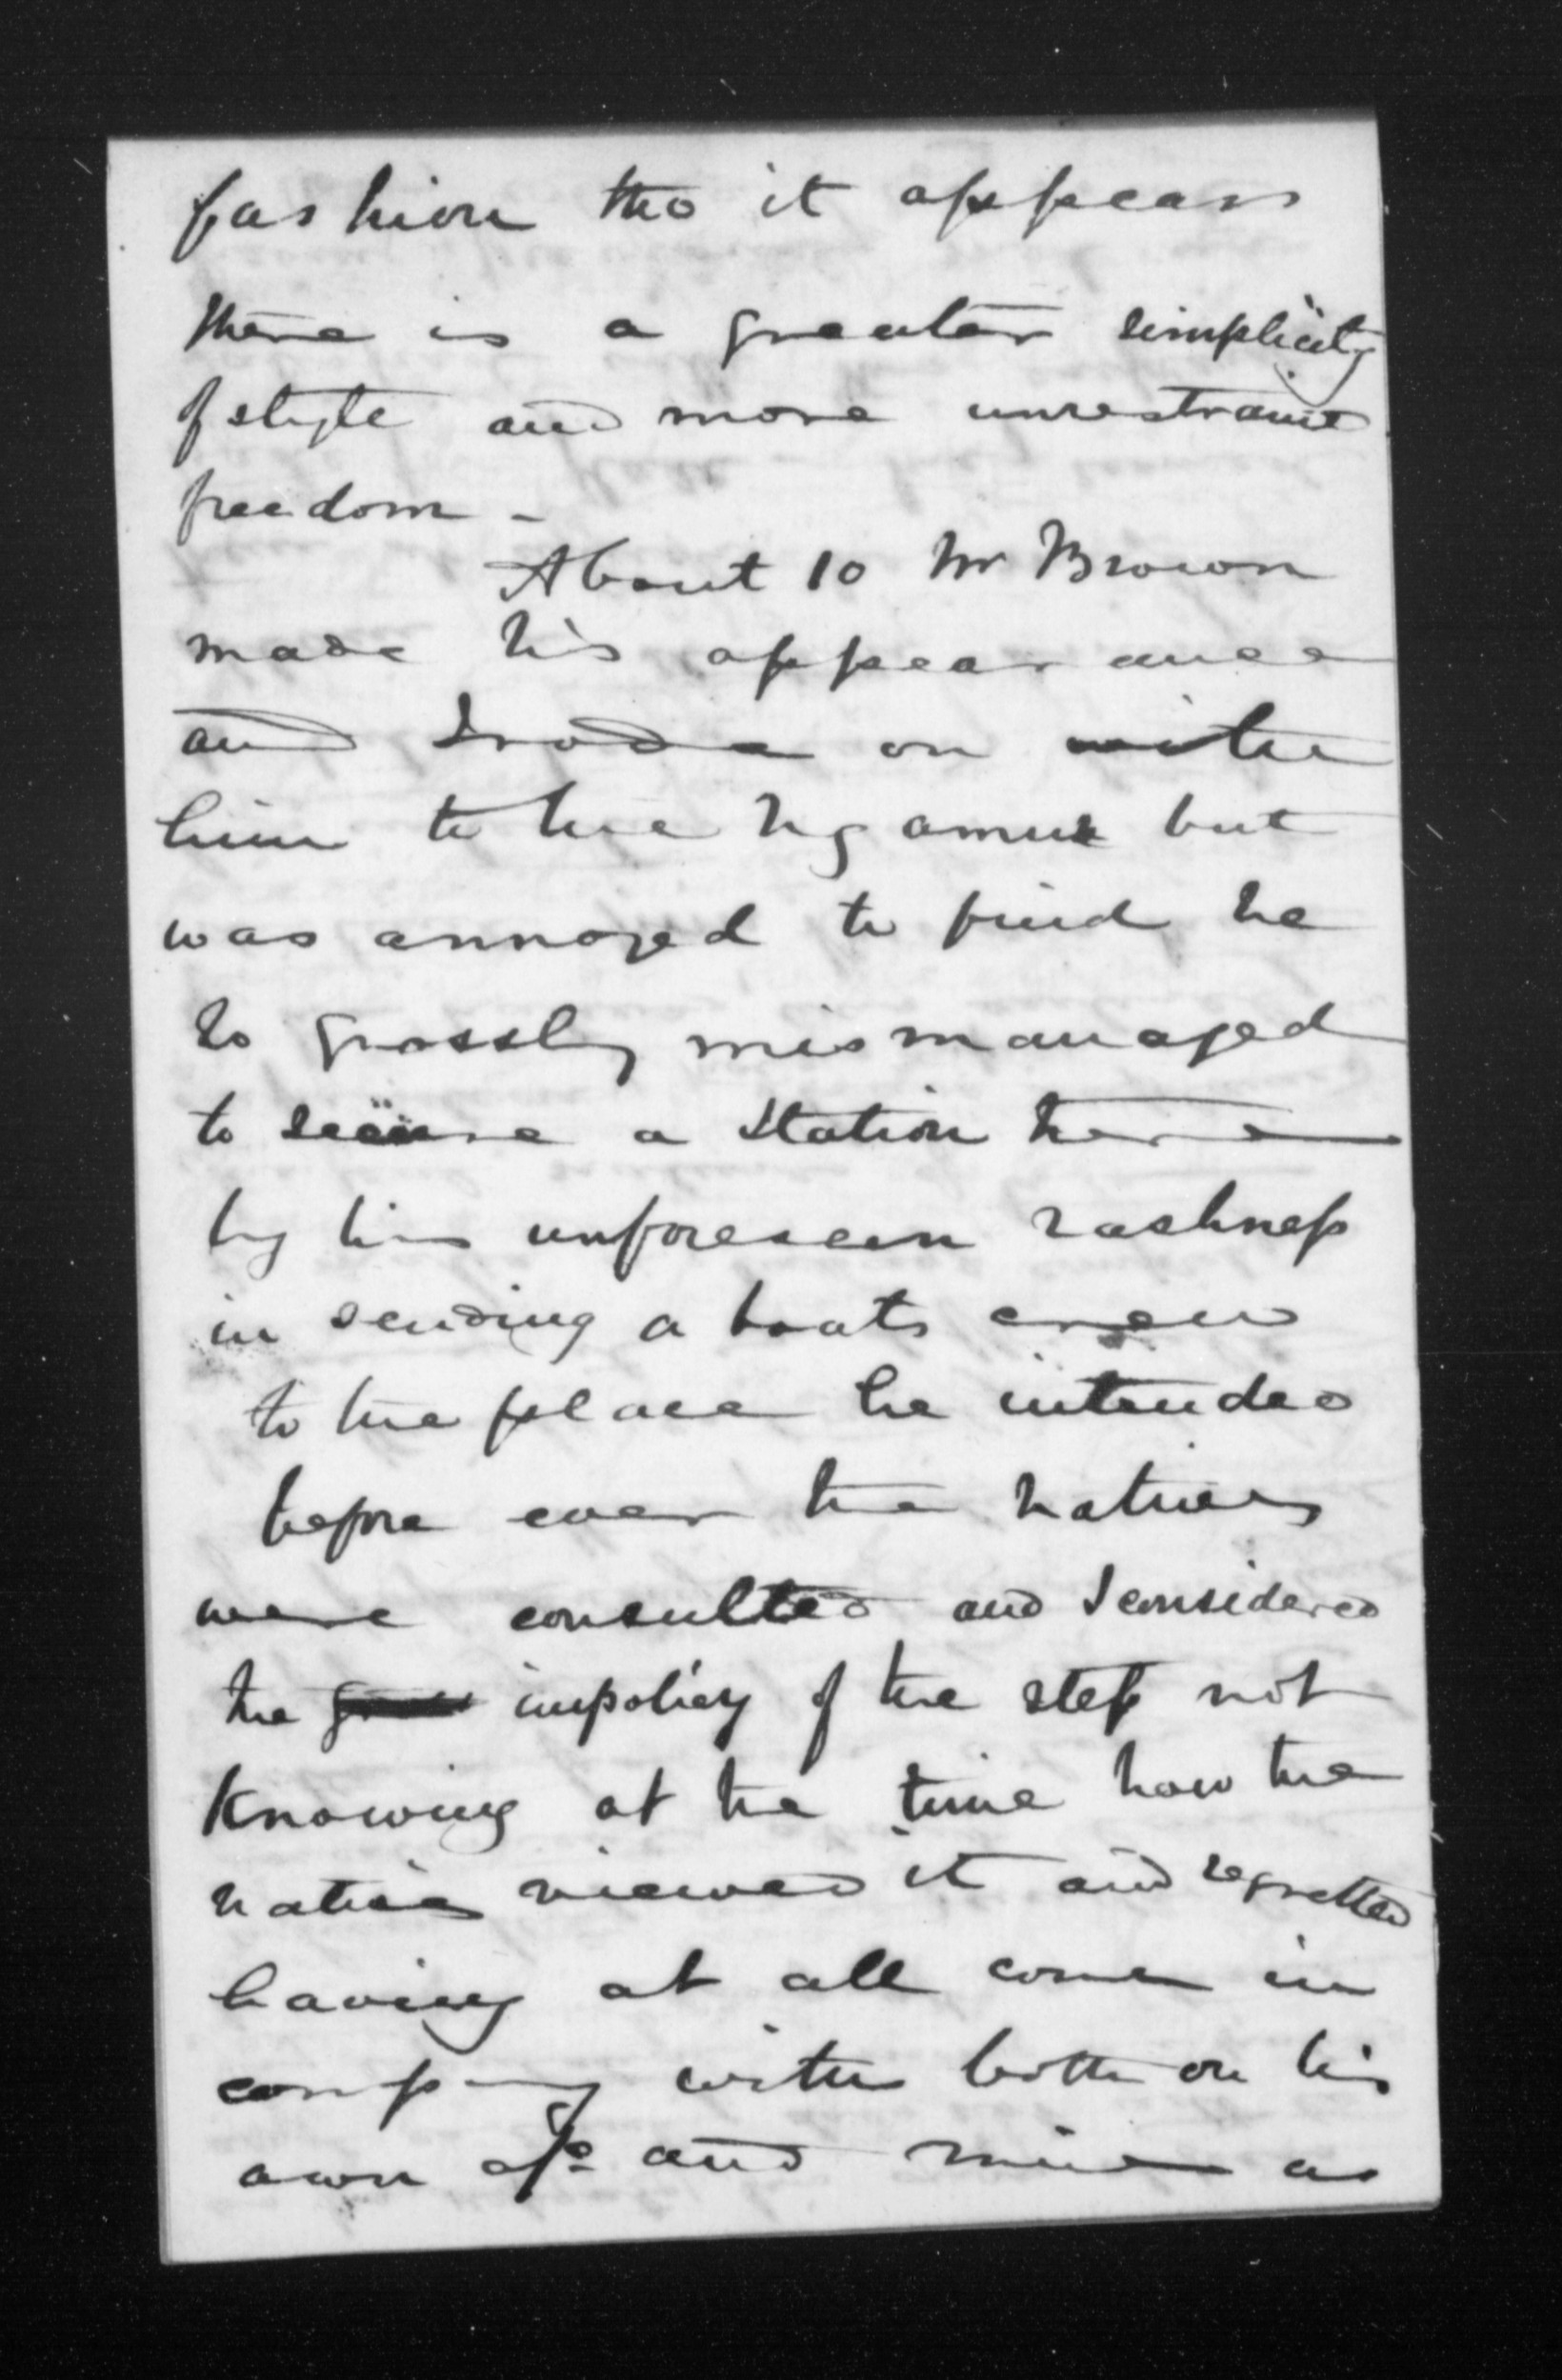 fashion tho it appears
there is a greater simplicity
of style and more unrestraint
freedom -
About 10 Mr Brown
made his appearance
and I rode on with
him to the Ngamue but
was annoyed to find he
so grossly mismanaged
to secure a station here
by his unforeseen rashness
in sending a boats crew
to the place he intended
before ever the natives
were consulted and I considered
the impolicy of the step not
knowing at the time how the
natives viewed it and regretted
having at all come in
company with both on his
own a/c and mine as